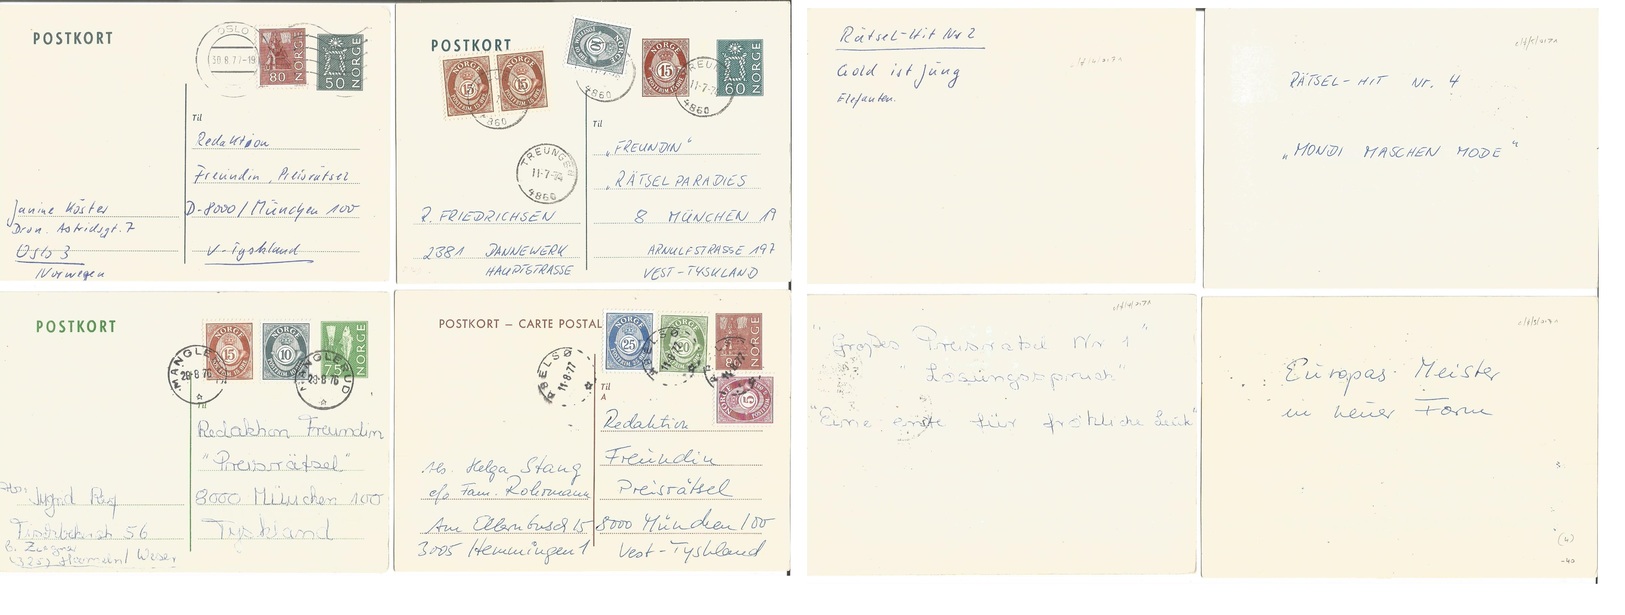 POSTKORT
OSLO
30.8.77-19
80 NORGE
50 NORGE
Til
Redaktion
Freundin, Preisrätsel
D-8000/München 100
V-Tyskland
Janine Köster
Dron. Astridsgt. 7
Oslo 3
Norwegen
POSTKORT
NORGE
15
NORGE
15
NORGE
10
15
60 NORGE
4860
4860
TREUNGEN
11-7-
TREUNGEN
11-7-
4860
Til
"FREUNDIN"
"RÄTSELPARADIES
8 MÜNCHEN 19
ARNULFSTRASSE 197
VEST-TYSKLAND
R. FRIEDRICHSEN
2381 DANNEWERK
HAUPTSTRASSE
POSTKORT
NORGE
15
NORGE
10
75 NORGE
MANGLERUD
28-8 76
MANGLERUD
28-8 76
Til
Redaktion Freundin
"Preisrätsel"
8000 München 100
Tyskland
56
POSTKORT — CARTE POSTALE
NORGE
25
NORGE
20
NORGE
NORGE
5
11-8-77
11-8-77
Til
A
Redaktion
Freundin
Preisrätsel
8000 München 100
Vest-Tyskland
Abs. Helga Stang
c/o Fam. Rohrmann
Am Ellernbusch 15
3005 Hemmingen 1
Rätsel-Hit Nr 2
Gold ist jung
Elefanten.
RÄTSEL-HIT NR. 4
"MONDI MASCHEN MODE"
"Großes Preisrätsel Nr 1"
"Lösungsspruch"
"Eine erste für fröhliche
Europas Meister
in neuer Form
(4)
-40